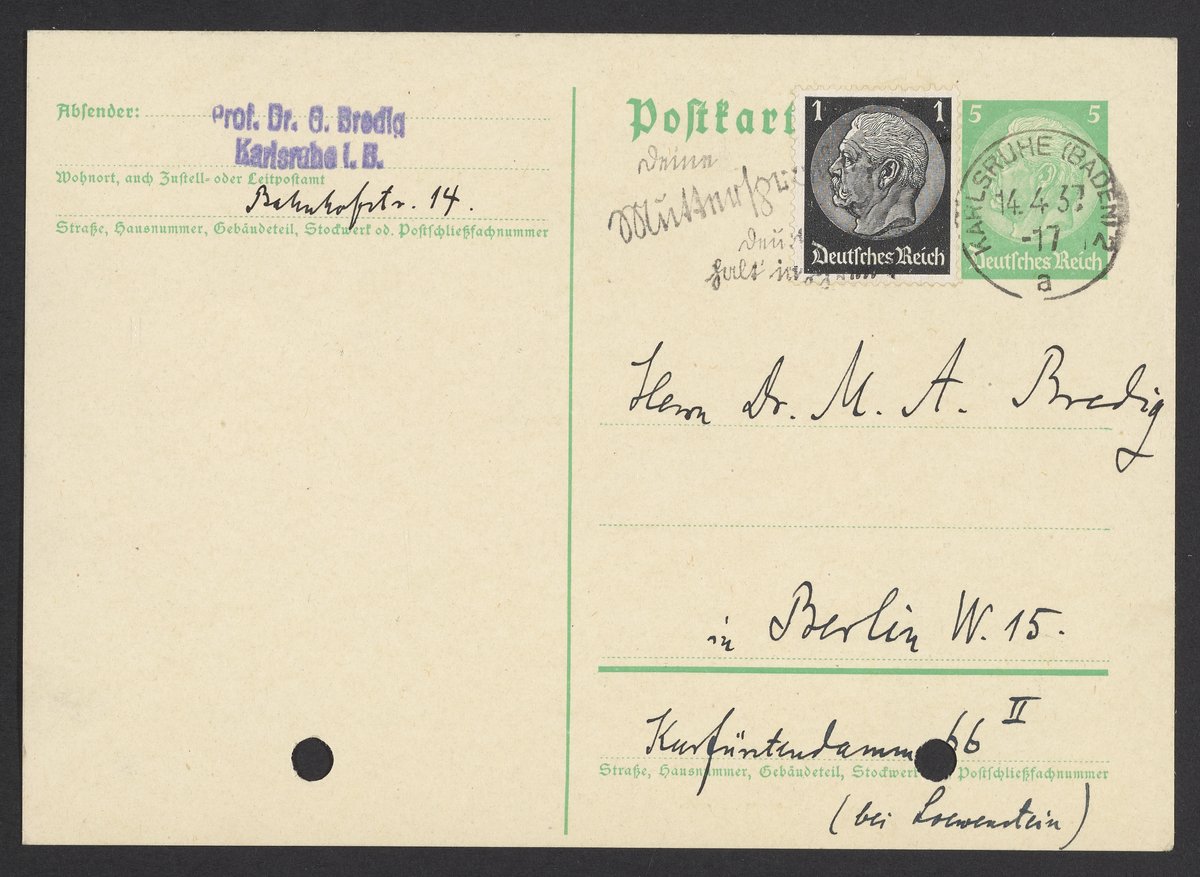 Absender:
Prof. Dr. G. Bredig
Karlsruhe i. B.
Wohnort, auch Zustell- oder Leitpostamt
Bahnhofstr. 14.
Straße, Hausnummer, Gebäudeteil, Stockwerk od. Postschließfachnummer
Postkart
Deine
Muttersp
deut
halt in
1 1
Deutsches Reich
5 5
Deutsches Reich
KARLSRUHE (BADEN) 2
14.4.37
-17
a
Herrn Dr. M. A. Bredig
in Berlin W. 15.
Kurfürstendamm 66 II
Straße, Hausnummer, Gebäudeteil, Stockwerk Postschließfachnummer
(bei Loewenstein)